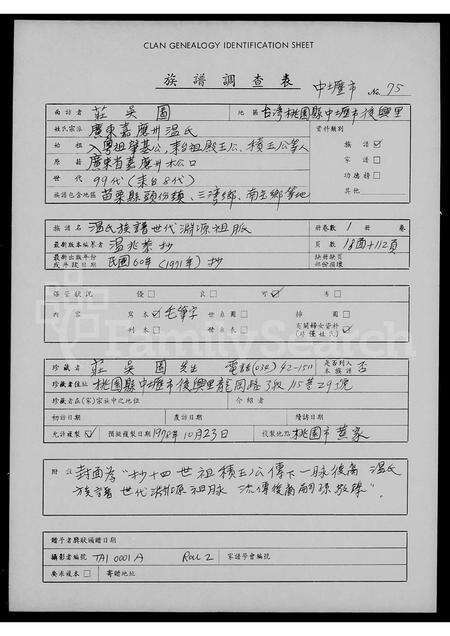 CLAN GENEALOGY IDENTIFICATION SHEET
族譜調查表 中壢市 No. 75
面訪者 莊吳圖 地區 台灣桃園縣中壢市後興里
姓氏宗派 廣東嘉應州温氏 資料類別
始祖 入粵祖肇基公, 來台祖殿玉公、積玉公等人 族譜 ☑
原籍 廣東省嘉應州松口 家譜 □
世代 99代(來台8代) 功德榜 □
族譜包含地區 苗栗縣頭份鎮、三灣鄉、南庄鄉等地 其他
族譜名 温氏族譜世代淵源祖脈 冊卷數 1 冊卷
最新版本編著者 温兆榮抄 頁數 18圖+112頁
最新出版年份或年錄日期 民國60年(1971年)抄 缺冊缺頁部份損壞
保管狀況 優□ 良□ 可☑ 劣□
內容 寫本☑毛筆字 世系圖□ 排圖□
刊本□ 世系表□ 有關婦女資料(不僅姓氏)☑
FamilySearch
珍藏者 莊吳圖 先生 電話(034)42-1511 是否列入本族譜 否
珍藏者住址 桃園縣中壢市後興里龍岡路3段115巷29號
珍藏者在(家)宗族中之地位 介紹者
初訪日期 度訪日期 隆訪日期
允許複製☑ 預擬複製日期 1978年10月23日 複製地點 桃園市黃家
附註 封面為"抄十四世祖積玉公傳下一脉後裔温氏
族譜世代淵源祖脉 流傳後裔嗣孫敬錄"。
贈予者獎狀頒贈日期
攝影者編號 TA1 0001 A Roll 2 家譜學會編號
要求複本□ 寄贈地址